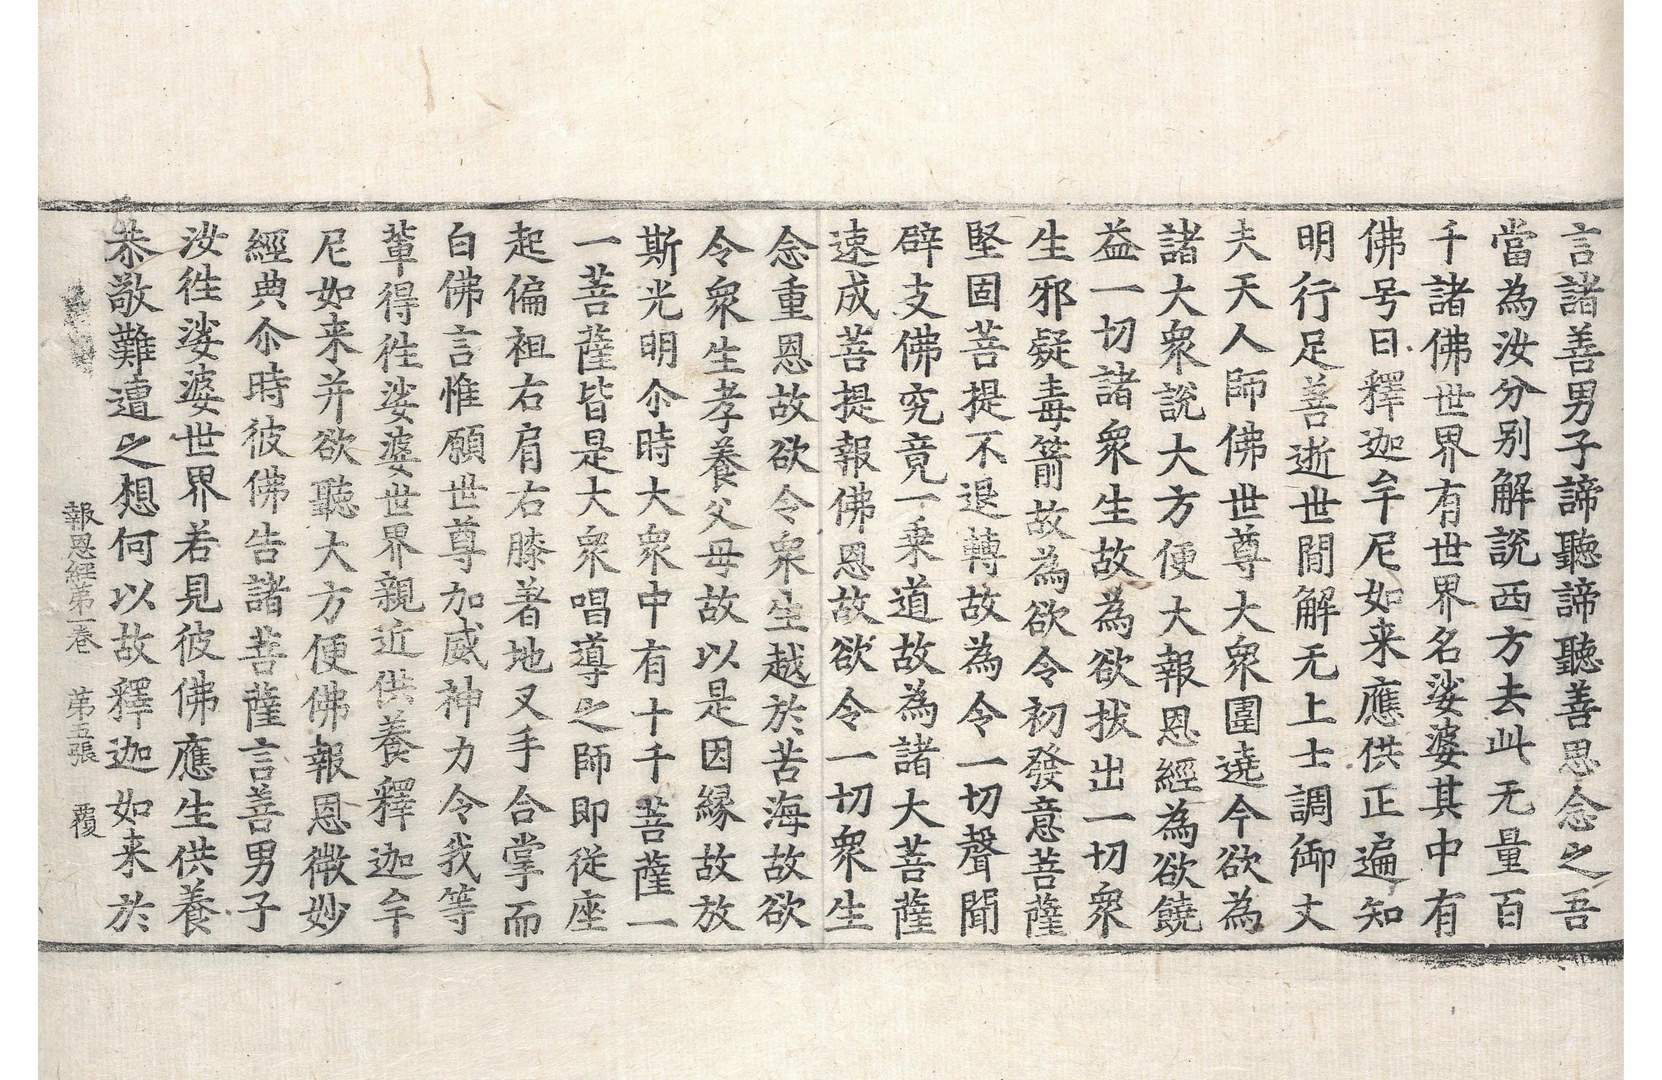 言諸善男子諦聽諦聽善思念之吾
當為汝分別解說西方去此无量百
千諸佛世界有世界名娑婆其中有
佛号曰釋迦牟尼如来應供正遍知
明行足善逝世間解无上士調御丈
夫天人師佛世尊大衆圍遶今欲為
諸大衆說大方便大報恩經為欲饒
益一切諸衆生故為欲拔出一切衆
生邪疑毒箭故為欲令初發意菩薩
堅固菩提不退轉故為令一切聲聞
辟支佛究竟一乗道故為諸大菩薩
速成菩提報佛恩故欲令一切衆生
念重恩故欲令衆生越於苦海故欲
令衆生孝養父母故以是因縁故放
斯光明尒時大衆中有十千菩薩一
一菩薩皆是大衆唱導之師即從座
起偏袒右肩右膝著地叉手合掌而
白佛言惟願世尊加威神力令我等
輩得徃娑婆世界親近供養釋迦牟
尼如来并欲聽大方便佛報恩微妙
經典尒時彼佛告諸菩薩言善男子
汝徃娑婆世界若見彼佛應生供養
恭敬難遭之想何以故釋迦如来於
報恩經第一卷 第五張 覆